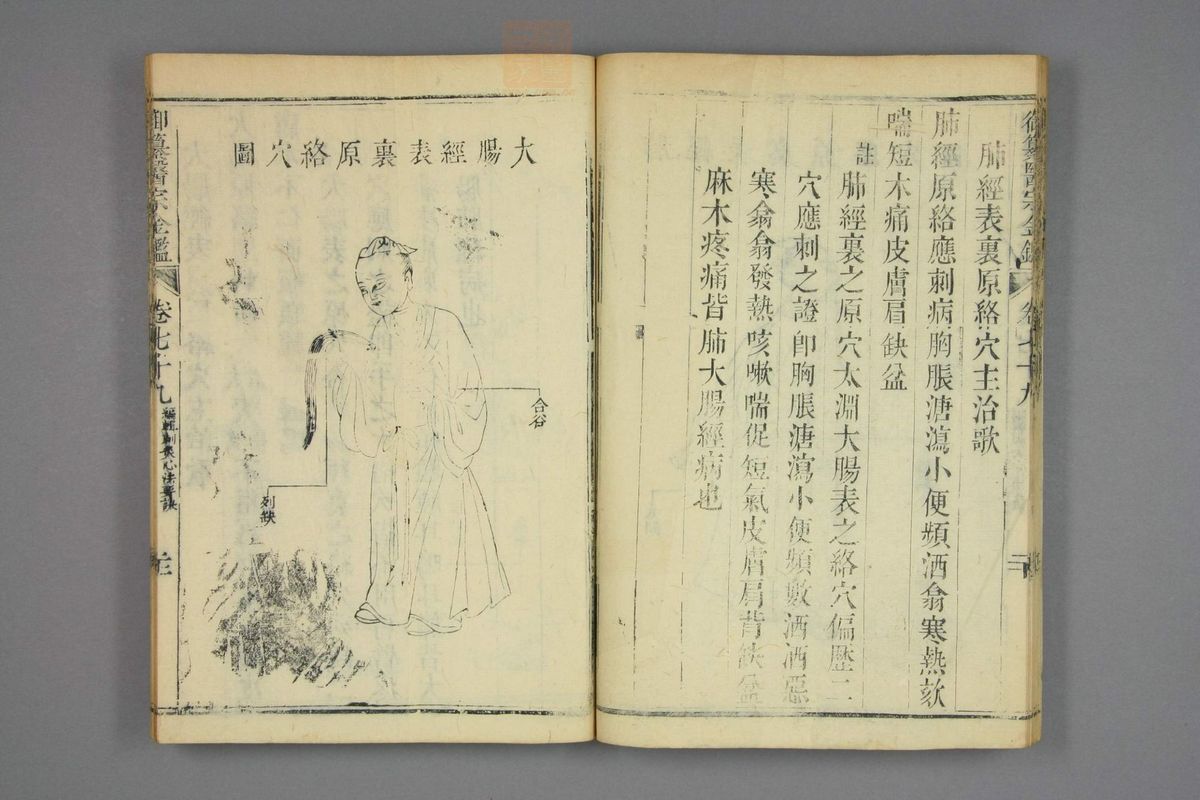 御纂醫宗金鑑
卷七十九
肺經表裏原絡穴主治歌
肺經原絡應刺病胸脹溏瀉小便頻洒翕寒熱欬
喘短木痛皮膚肩缺盆
註
肺經裏之原穴太淵大腸表之絡穴偏歷二
穴應刺之證卽胸脹溏瀉小便頻數洒洒惡
寒翕翕發熱咳嗽喘促短氣皮膚肩背缺盆
麻木疼痛皆肺大腸經病也
大腸經表裏原絡穴圖
合谷
列缺
御纂醫宗金鑑
卷七十九
編輯刺灸心法要訣